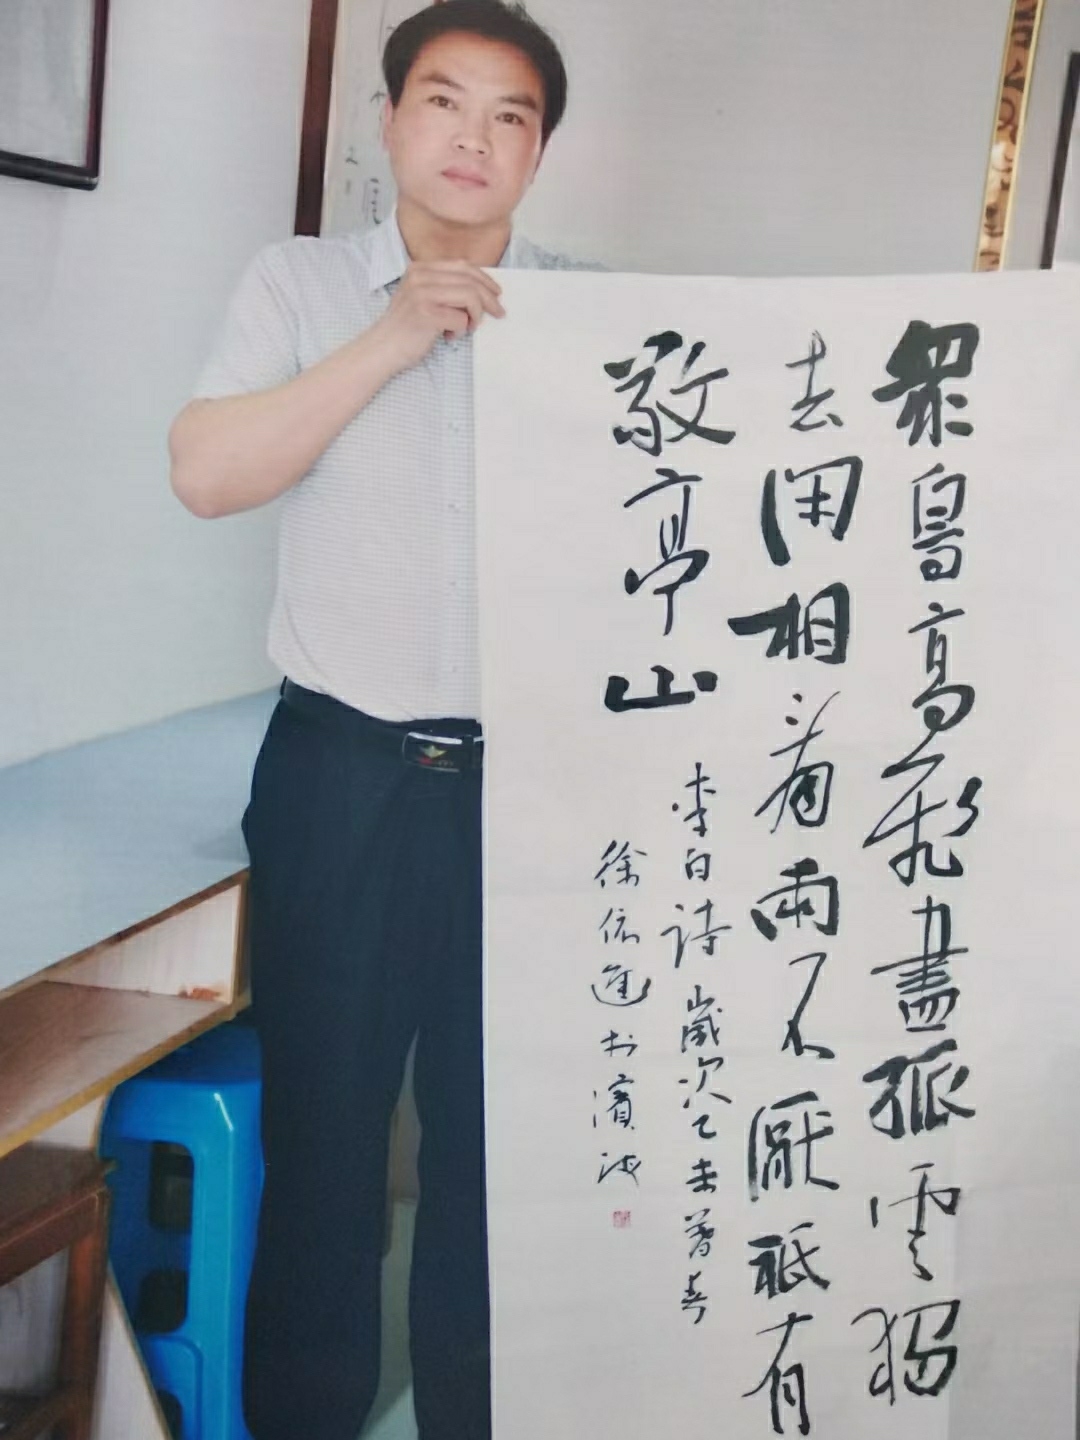 眾鳥高飛盡孤雲獨
去閑相看兩不厭祗有
敬亭山
李白詩 歲次乙未暮春
徐 進 於濱海